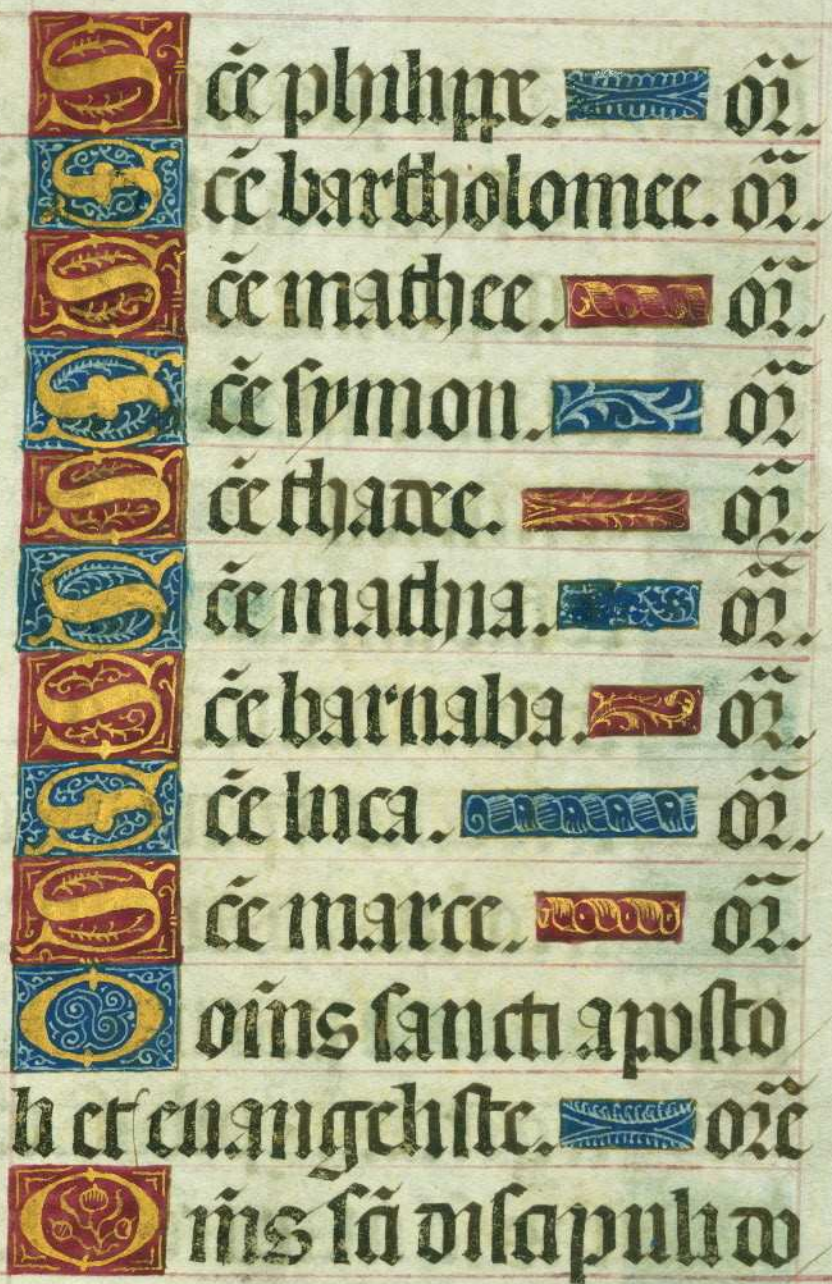 Sc̄e philippe. or̄.
Sc̄e bartholomee. or̄.
Sc̄e mathee. or̄.
Sc̄e symon. or̄
Sc̄e thadee. or̄.
Sc̄e mathia. or̄.
Sc̄e barnaba. or̄.
Sc̄e luca. or̄.
Sc̄e marce. or̄.
Oom̄s sancti aposto
li et euangeliste. or̄e
Om̄s sc̄i discipuli do